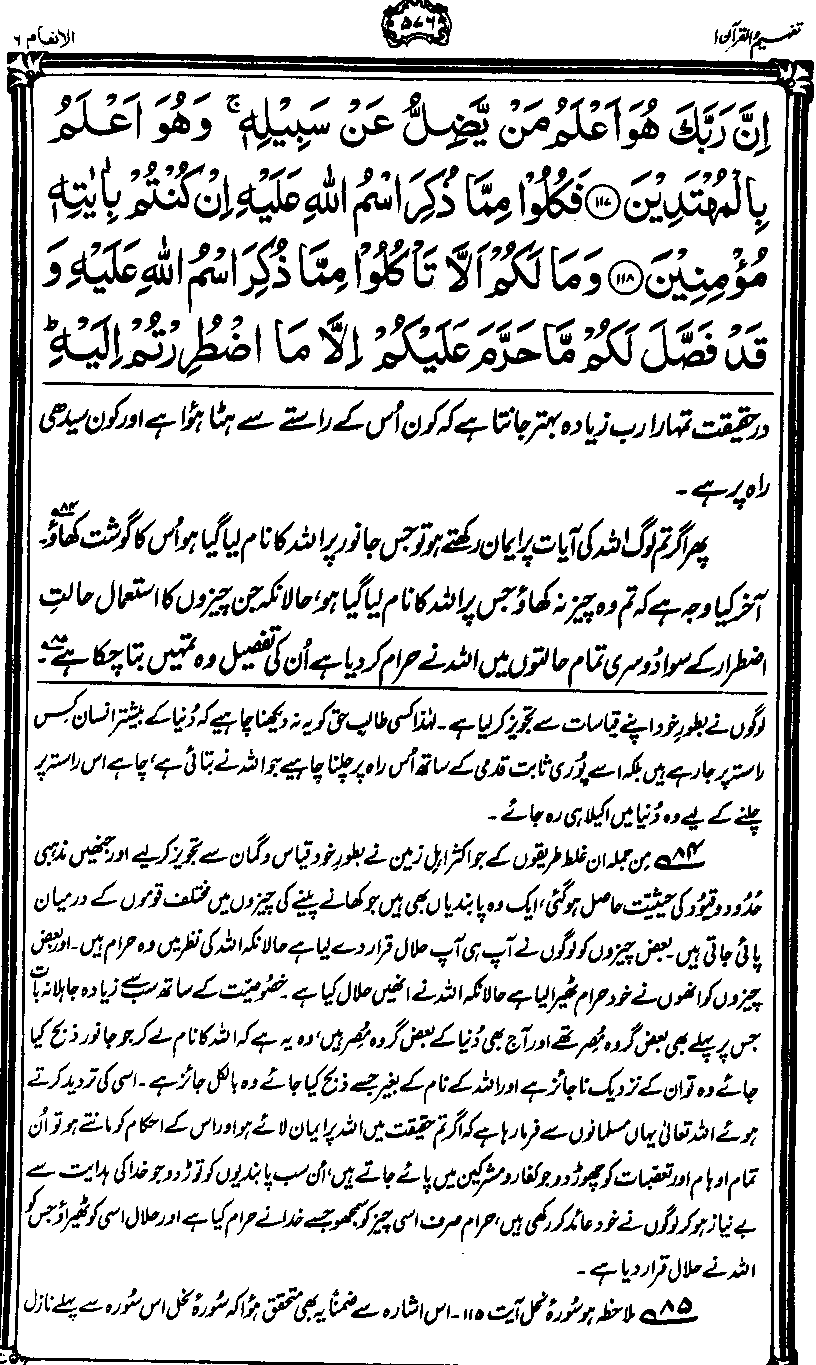 تفہیم القرآن ۱
۵۷۶
الانعام ۶
اِنَّ رَبَّكَ هُوَ اَعْلَمُ مَنْ يَّضِلُّ عَنْ سَبِيْلِهٖ ۚ وَهُوَ اَعْلَمُ
بِالْمُهْتَدِيْنَ ﴿۱۱۷﴾ فَكُلُوْا مِمَّا ذُكِرَ اسْمُ اللّٰهِ عَلَيْهِ اِنْ كُنْتُمْ بِاٰيٰتِهٖ
مُؤْمِنِيْنَ ﴿۱۱۸﴾ وَمَا لَكُمْ اَلَّا تَاْكُلُوْا مِمَّا ذُكِرَ اسْمُ اللّٰهِ عَلَيْهِ وَ
قَدْ فَصَّلَ لَكُمْ مَّا حَرَّمَ عَلَيْكُمْ اِلَّا مَا اضْطُرِرْتُمْ اِلَيْهِ ؕ
درحقیقت تمہارا رب زیادہ بہتر جانتا ہے کہ کون اُس کے راستے سے ہٹا ہؤا ہے اور کون سیدھی
راہ پر ہے۔
پھر اگر تم لوگ اللہ کی آیات پر ایمان رکھتے ہو تو جس جانور پر اللہ کا نام لیا گیا ہو اُس کا گوشت کھاؤ۸۴۔
آخر کیا وجہ ہے کہ تم وہ چیز نہ کھاؤ جس پر اللہ کا نام لیا گیا ہو، حالانکہ جن چیزوں کا استعمال حالتِ
اضطرار کے سوا دُوسری تمام حالتوں میں اللہ نے حرام کر دیا ہے اُن کی تفصیل وہ تمہیں بتا چکا ہے۸۵۔
لوگوں نے بطورِ خود اپنے قیاسات سے تجویز کر لیا ہے۔ لہٰذا کسی طالبِ حق کو یہ نہ دیکھنا چاہیے کہ دُنیا کے بیشتر انسان کِس
راستہ پر جا رہے ہیں بلکہ اسے پُوری ثابت قدمی کے ساتھ اُس راہ پر چلنا چاہیے جو اللہ نے بتائی ہے، چاہے اس راستہ پر
چلنے کے لیے وہ دُنیا میں اکیلا ہی رہ جائے۔
۸۴ من جملہ ان غلط طریقوں کے جو اکثر اہلِ زمین نے بطورِ خود قیاس و گمان سے تجویز کر لیے اور جنھیں مذہبی
حُدود و قیُود کی حیثیت حاصل ہو گئی، ایک وہ پابندیاں بھی ہیں جو کھانے پینے کی چیزوں میں مختلف قوموں کے درمیان
پائی جاتی ہیں۔ بعض چیزوں کو لوگوں نے آپ ہی آپ حلال قرار دے لیا ہے حالانکہ اللہ کی نظر میں وہ حرام ہیں۔ اور بعض
چیزوں کو انھوں نے خود حرام ٹھیرا لیا ہے حالانکہ اللہ نے انھیں حلال کیا ہے۔ خصوصیّت کے ساتھ سب سے زیادہ جاہلانہ بات
جس پر پہلے بھی بعض گروہ مُصِر تھے اور آج بھی دُنیا کے بعض گروہ مُصِر ہیں، وہ یہ ہے کہ اللہ کا نام لے کر جو جانور ذبح کیا
جائے وہ تو ان کے نزدیک ناجائز ہے اور اللہ کے نام کے بغیر جسے ذبح کیا جائے وہ بالکل جائز ہے۔ اسی کی تردید کرتے
ہوئے اللہ تعالیٰ یہاں مسلمانوں سے فرما رہا ہے کہ اگر تم حقیقت میں اللہ پر ایمان لائے ہو اور اس کے احکام کو مانتے ہو تو اُن
تمام اوہام اور تعصبات کو چھوڑ دو جو کفار و مشرکین میں پائے جاتے ہیں، اُن سب پابندیوں کو توڑ دو جو خدا کی ہدایت سے
بے نیاز ہو کر لوگوں نے خود عائد کر رکھی ہیں، حرام صرف اسی چیز کو سمجھو جسے خدا نے حرام کیا ہے اور حلال اسی کو ٹھیراؤ جس کو
اللہ نے حلال قرار دیا ہے۔
۸۵ ملاحظہ ہو سُورۂ نحل آیت ۱۱۵۔ اس اشارہ سے ضمناً یہ بھی متحقق ہؤا کہ سُورۂ نحل اس سُورہ سے پہلے نازل